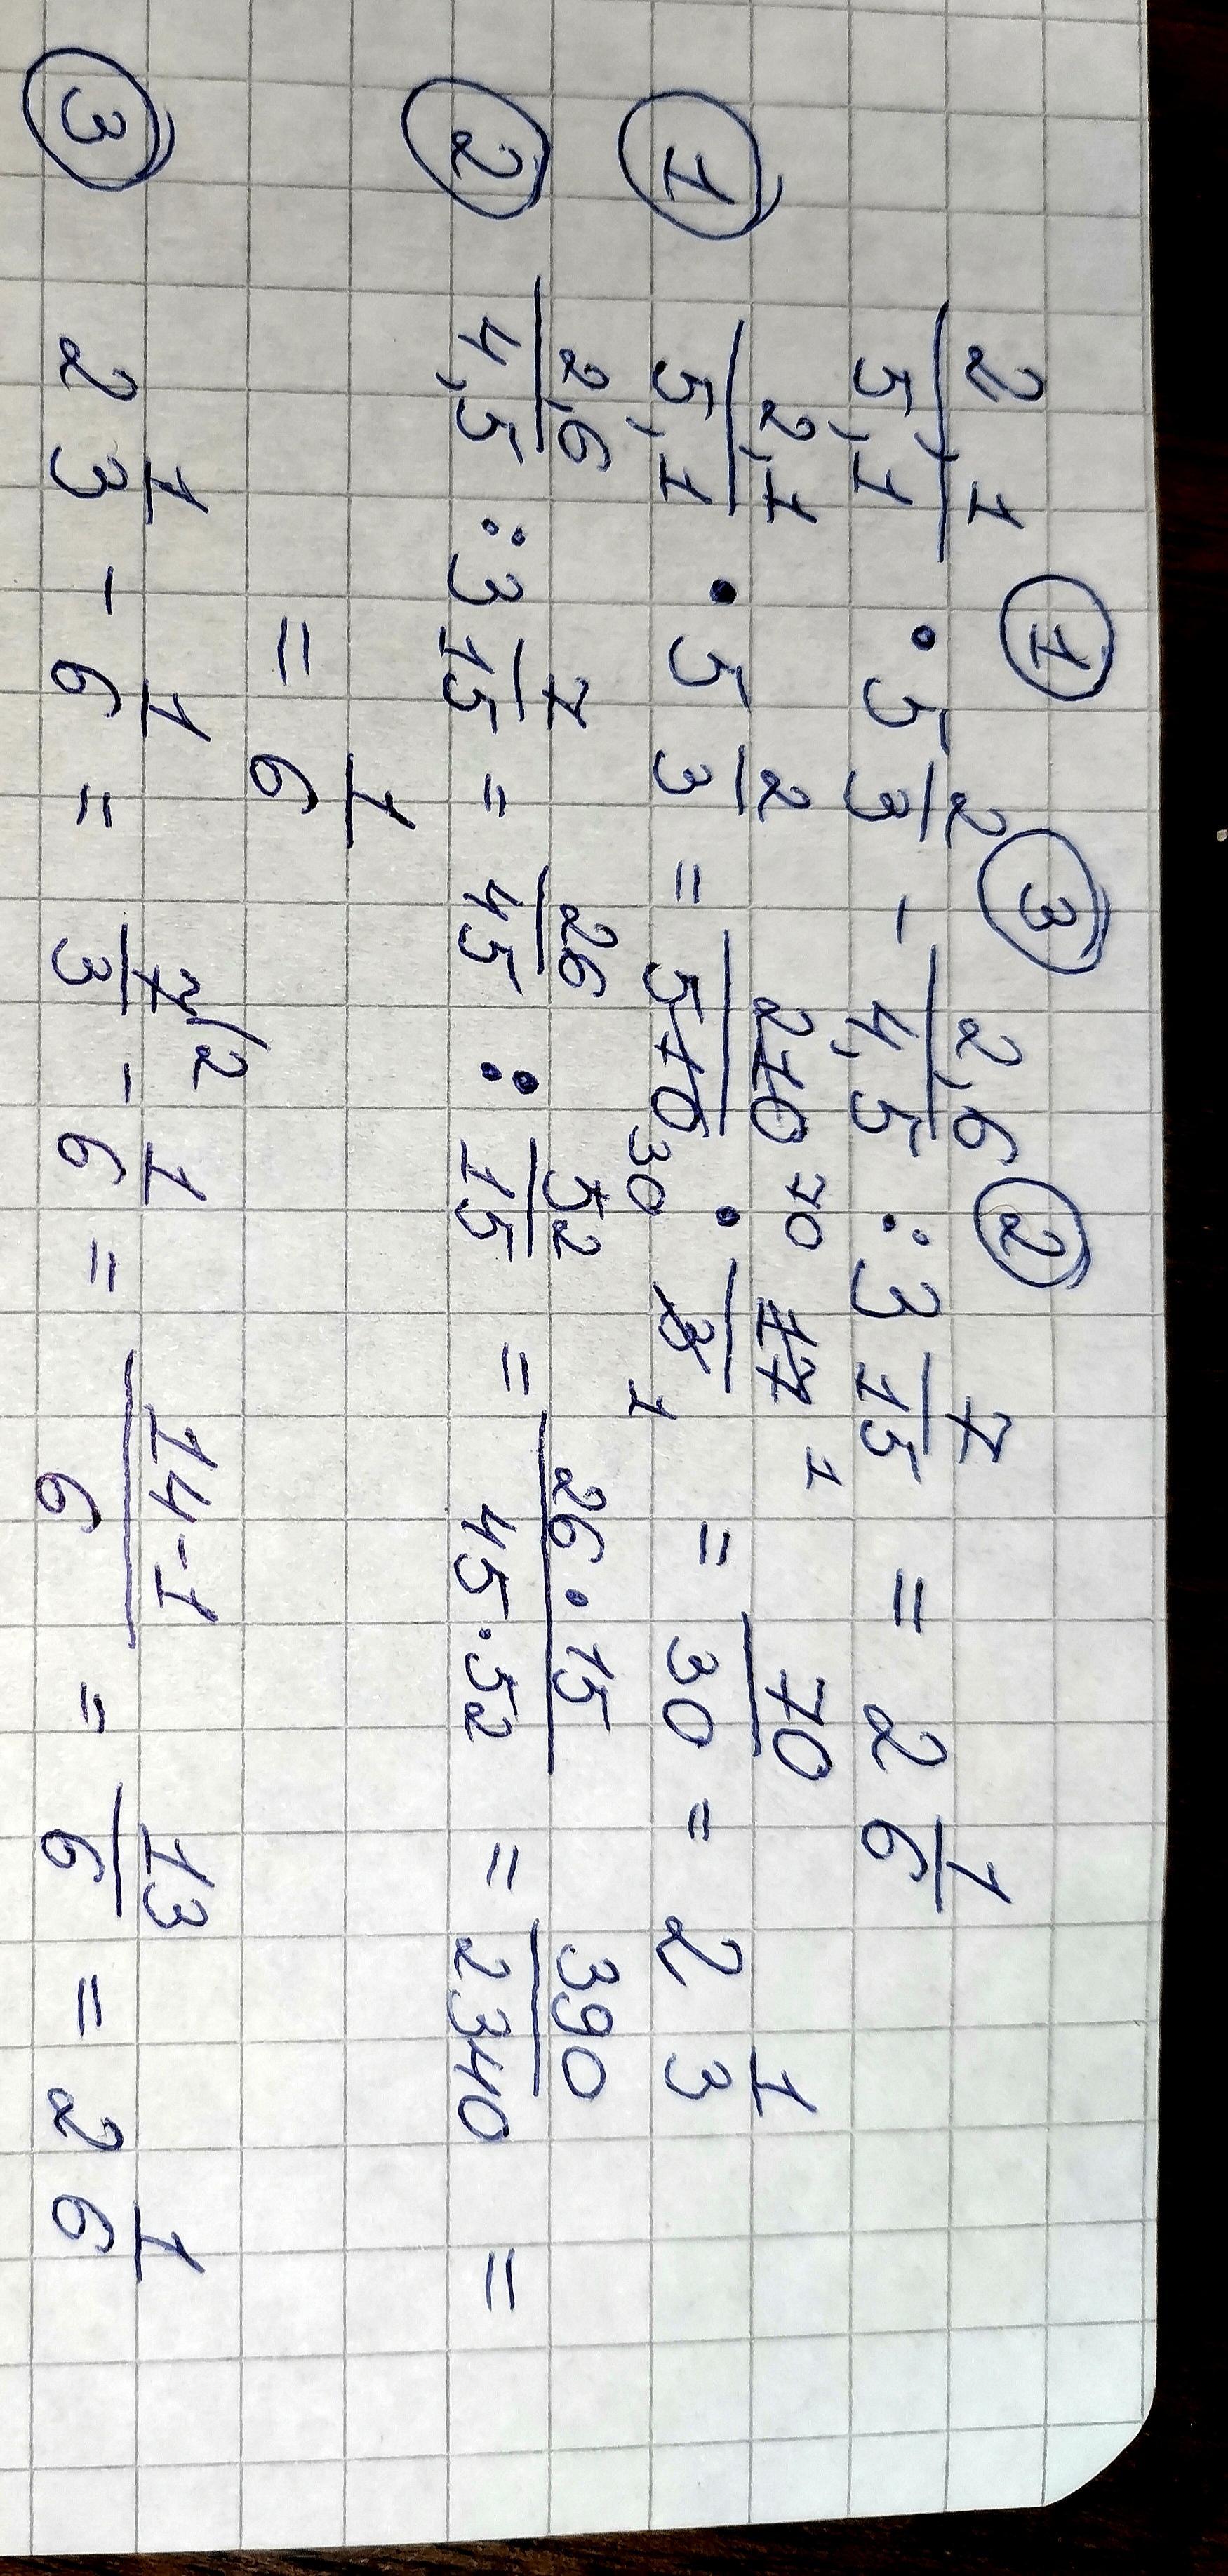 ① ③ ②
2,1/5,1 · 5 2/3 - 2,6/4,5 : 3 7/15 = 2 1/6
① 2,1/5,1 · 5 2/3 = 210/510 70 30 · 17/3 1 1 = 70/30 = 2 1/3
② 2,6/4,5 : 3 7/15 = 26/45 : 52/15 = 26·15/45·52 = 390/2340 =
= 1/6
③ 2 1/3 - 1/6 = 7/3 (2 - 1/6 = 14-1/6 = 13/6 = 2 1/6